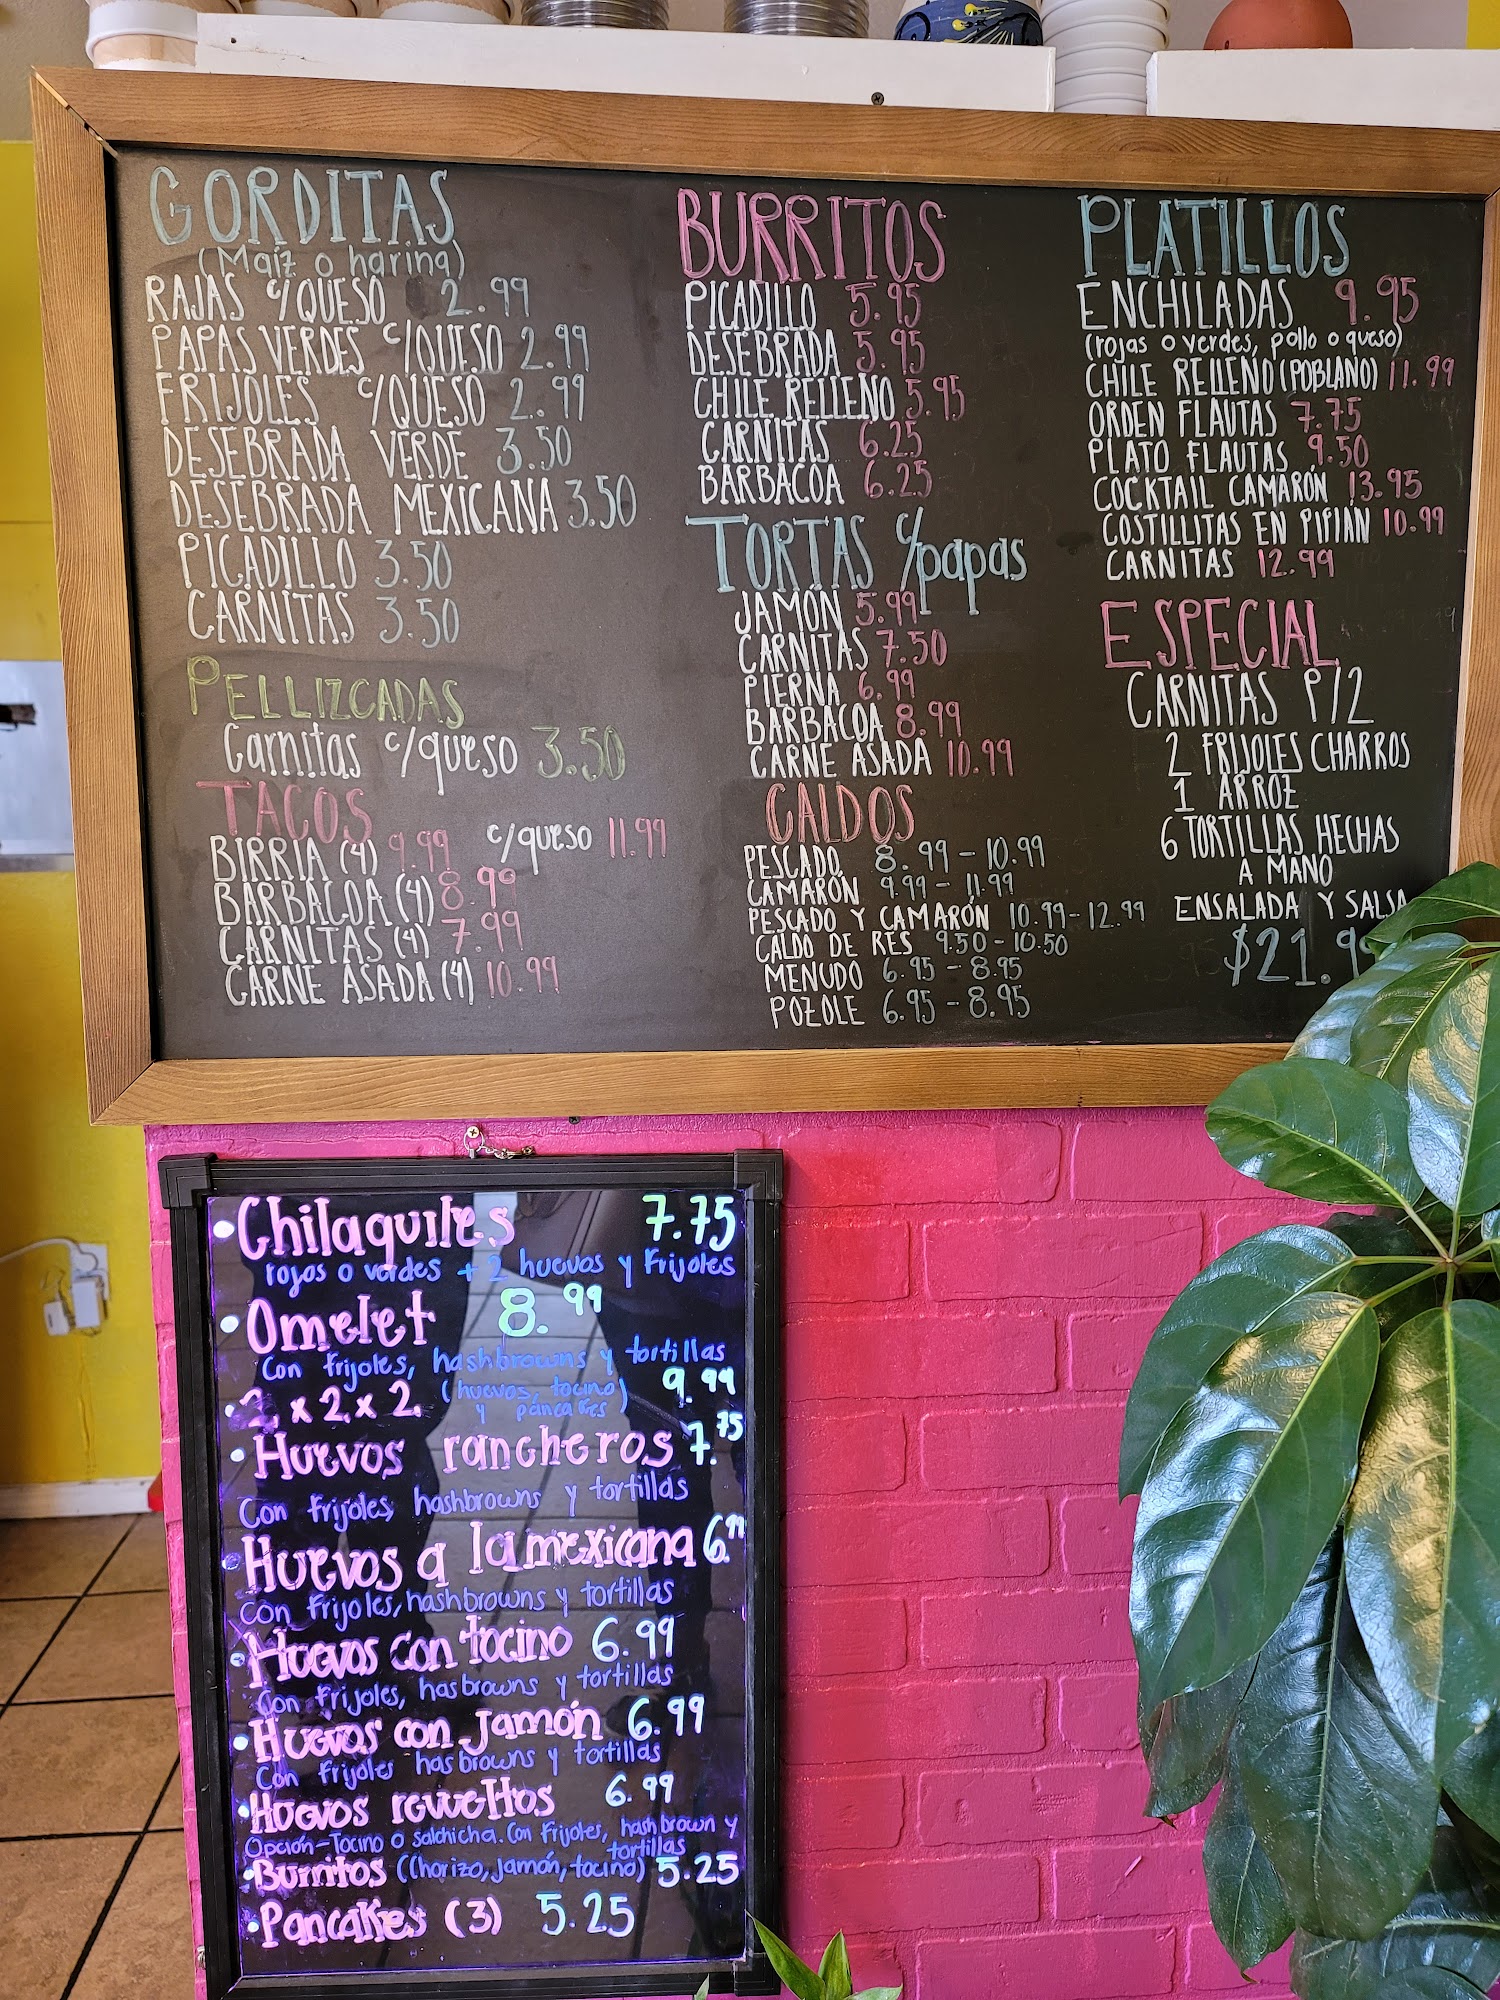 GORDITAS
(Maiz o harina)
RAJAS c/QUESO 2.99
PAPAS VERDES c/QUESO 2.99
FRIJOLES c/QUESO 2.99
DESEBRADA VERDE 3.50
DESEBRADA MEXICANA 3.50
PICADILLO 3.50
CARNITAS 3.50
PELLIZCADAS
Carnitas c/queso 3.50
TACOS
BIRRIA (4) 9.99 c/queso 11.99
BARBACOA (4) 8.99
CARNITAS (4) 7.99
CARNE ASADA (4) 10.99
BURRITOS
PICADILLO 5.95
DESEBRADA 5.95
CHILE RELLENO 5.95
CARNITAS 6.25
BARBACOA 6.25
TORTAS c/papas
JAMÓN 5.99
CARNITAS 7.50
PIERNA 6.99
BARBACOA 8.99
CARNE ASADA 10.99
CALDOS
PESCADO 8.99 - 10.99
CAMARÓN 9.99 - 11.99
PESCADO Y CAMARÓN 10.99 - 12.99
CALDO DE RES 9.50 - 10.50
MENUDO 6.95 - 8.95
POZOLE 6.95 - 8.95
PLATILLOS
ENCHILADAS 9.95
(rojas o verdes, pollo o queso)
CHILE RELLENO (POBLANO) 11.99
ORDEN FLAUTAS 7.75
PLATO FLAUTAS 9.50
COCKTAIL CAMARÓN 13.95
COSTILLITAS EN PIPIAN 10.99
CARNITAS 12.99
ESPECIAL
CARNITAS P/2
2 FRIJOLES CHARROS
1 ARROZ
6 TORTILLAS HECHAS
A MANO
ENSALADA Y SALSA
$21.99
• Chilaquiles 7.75
rojos o verdes + 2 huevos y Frijoles
• Omelet 8.99
Con frijoles, hashbrowns y tortillas
• 2 x 2 x 2 (huevos, tocino) 9.99
y pancakes
• Huevos rancheros 7.75
Con frijoles, hashbrowns y tortillas
• Huevos a la mexicana 6.99
Con frijoles, hashbrowns y tortillas
• Huevos con tocino 6.99
Con frijoles, hasbrowns y tortillas
• Huevos con jamón 6.99
Con frijoles hasbrowns y tortillas
• Huevos revueltos 6.99
Opción-Tocino o salchicha. Con Frijoles, hash brown y
tortillas
• Burritos (Chorizo, jamón, tocino) 5.25
• Pancakes (3) 5.25